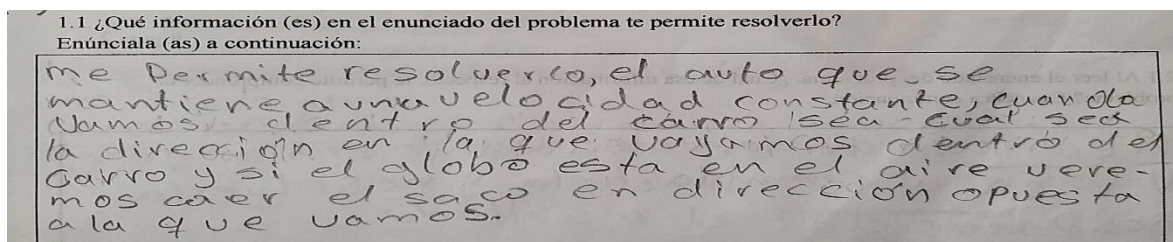 1.1 ¿Qué información (es) en el enunciado del problema te permite resolverlo?
Enúnciala (as) a continuación:
me Permite resolverlo, el auto que se
mantiene a una velocidad constante, cuando
Vamos dentro del carro sea cual sea
la dirección en la que vayamos dentro del
Carro y si el globo esta en el aire vere-
mos caer el saco en dirección opuesta
a la que vamos.